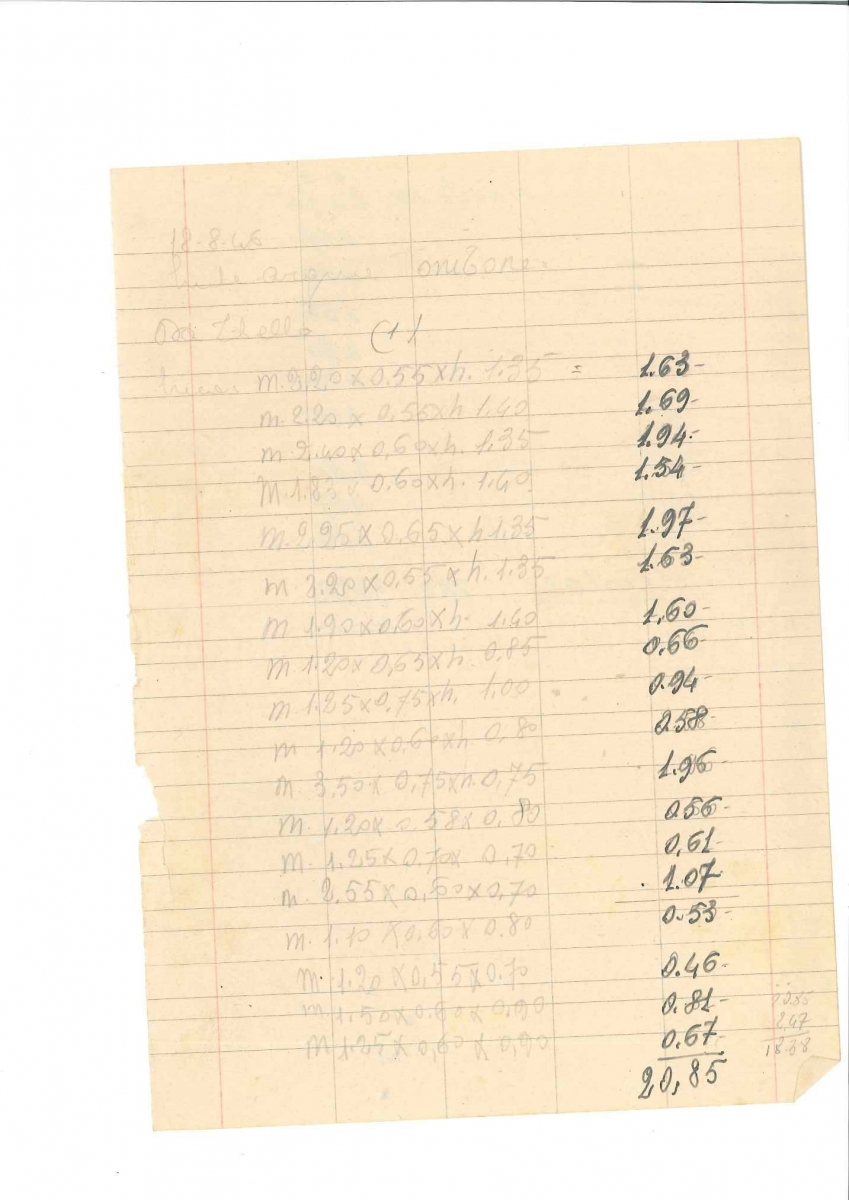 18-8-46
Ombone.
(1)
m. 2.20 x 0.55 x h. 1.35 = 1.63-
m. 2.20 x 0,55 x h 1.40 1.69-
m. 2.40 x 0,60 x h. 1.35 1.94-
m. 1.83 x 0.60 x h. 1.40 1.54-
m. 2.25 x 0.65 x h 1.35 1.97-
m. 2.20 x 0,55 x h. 1.35 1.63-
m 1.90 x 0.60 x h. 1.40 1.60-
m. 1.20 x 0,65 x h. 0.85 0.66-
m. 1.25 x 0.75 x h. 1.00 0.94-
m 1.20 x 0,60 x h 0,80 0.58-
m. 3,50 x 0,75 x h. 0,75 1.96-
m. 1.20 x 0.58 x 0,80 0.56-
m. 1.25 x 0,70 x 0,70 0,61-
m. 2,55 x 0,60 x 0,70 1.07-
m. 1.10 x 0,60 x 0.80 0.53-
m. 1.20 x 0.55 x 0.70 0.46-
m 1.50 x 0.60 x 0,90 0.81-
m 1.25 x 0,60 x 0,90 0.67-
20,85
20.85
2,47
18.38